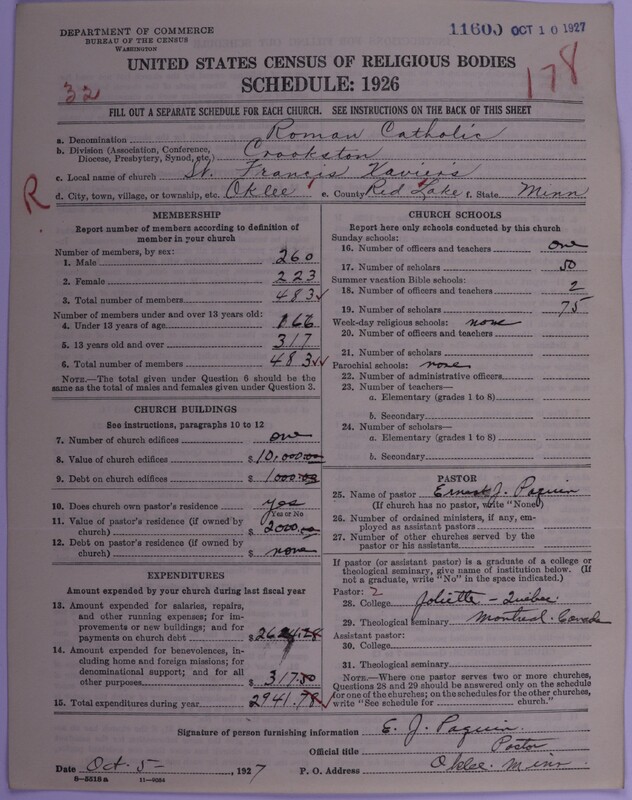 DEPARTMENT OF COMMERCE
BUREAU OF THE CENSUS
WASHINGTON
11600 OCT 10 1927
UNITED STATES CENSUS OF RELIGIOUS BODIES
SCHEDULE: 1926
32
178
FILL OUT A SEPARATE SCHEDULE FOR EACH CHURCH. SEE INSTRUCTIONS ON THE BACK OF THIS SHEET
a. Denomination Roman Catholic
b. Division (Association, Conference, Diocese, Presbytery, Synod, etc.) Crookston
c. Local name of church St. Francis Xavier's
R
d. City, town, village, or township, etc. Oklee e. County Red Lake f. State Minn
MEMBERSHIP
Report number of members according to definition of
member in your church
Number of members, by sex:
1. Male 260
2. Female 223
3. Total number of members 483
Number of members under and over 13 years old:
4. Under 13 years of age 166
5. 13 years old and over 317
6. Total number of members 483
NOTE.—The total given under Question 6 should be
same as the total of males and females given under Question 3.
CHURCH BUILDINGS
See instructions, paragraphs 10 to 12
7. Number of church edifices one
8. Value of church edifices $10,000.00
9. Debt on church edifices $1000.00
10. Does church own pastor's residence? yes
Yes or No
11. Value of pastor's residence (if owned by
church) $2000.00
12. Debt on pastor's residence (if owned by
church) $none
EXPENDITURES
Amount expended by your church during last fiscal year
13. Amount expended for salaries, repairs,
and other running expenses; for im-
provements or new buildings; and for
payments on church debt $2624.28
14. Amount expended for benevolences, in-
cluding home and foreign missions; for
denominational support; and for all
other purposes $317.50
15. Total expenditures during year 2941.78
CHURCH SCHOOLS
Report here only schools conducted by this church
Sunday schools:
16. Number of officers and teachers one
17. Number of scholars 50
Summer vacation Bible schools:
18. Number of officers and teachers 2
19. Number of scholars 75
Week-day religious schools: none
20. Number of officers and teachers
21. Number of scholars
Parochial schools: none
22. Number of administrative officers
23. Number of teachers—
a. Elementary (grades 1 to 8)
b. Secondary
24. Number of scholars—
a. Elementary (grades 1 to 8)
b. Secondary
PASTOR
25. Name of pastor Ernest J. Paquin
(If church has no pastor, write "None")
26. Number of ordained ministers, if any, em-
ployed as assistant pastors
27. Number of other churches served by the
pastor or his assistants
If pastor (or assistant pastor) is a graduate of a college or
theological seminary, give name of institution below. (If
not a graduate, write "No" in the space indicated.)
Pastor: 2
28. College Joliette - Quebec.
29. Theological seminary Montreal. Canada
Assistant pastor:
30. College
31. Theological seminary
NOTE.—Where one pastor serves two or more churches,
Questions 28 and 29 should be answered only on the schedule
for one of the churches; on the schedules for the other churches,
write "See schedule for church."
Signature of person furnishing information E. J. Paquin.
Official title Pastor
Date Oct. 5-, 1927 P. O. Address Oklee. Minn
8-5518a 11-9084